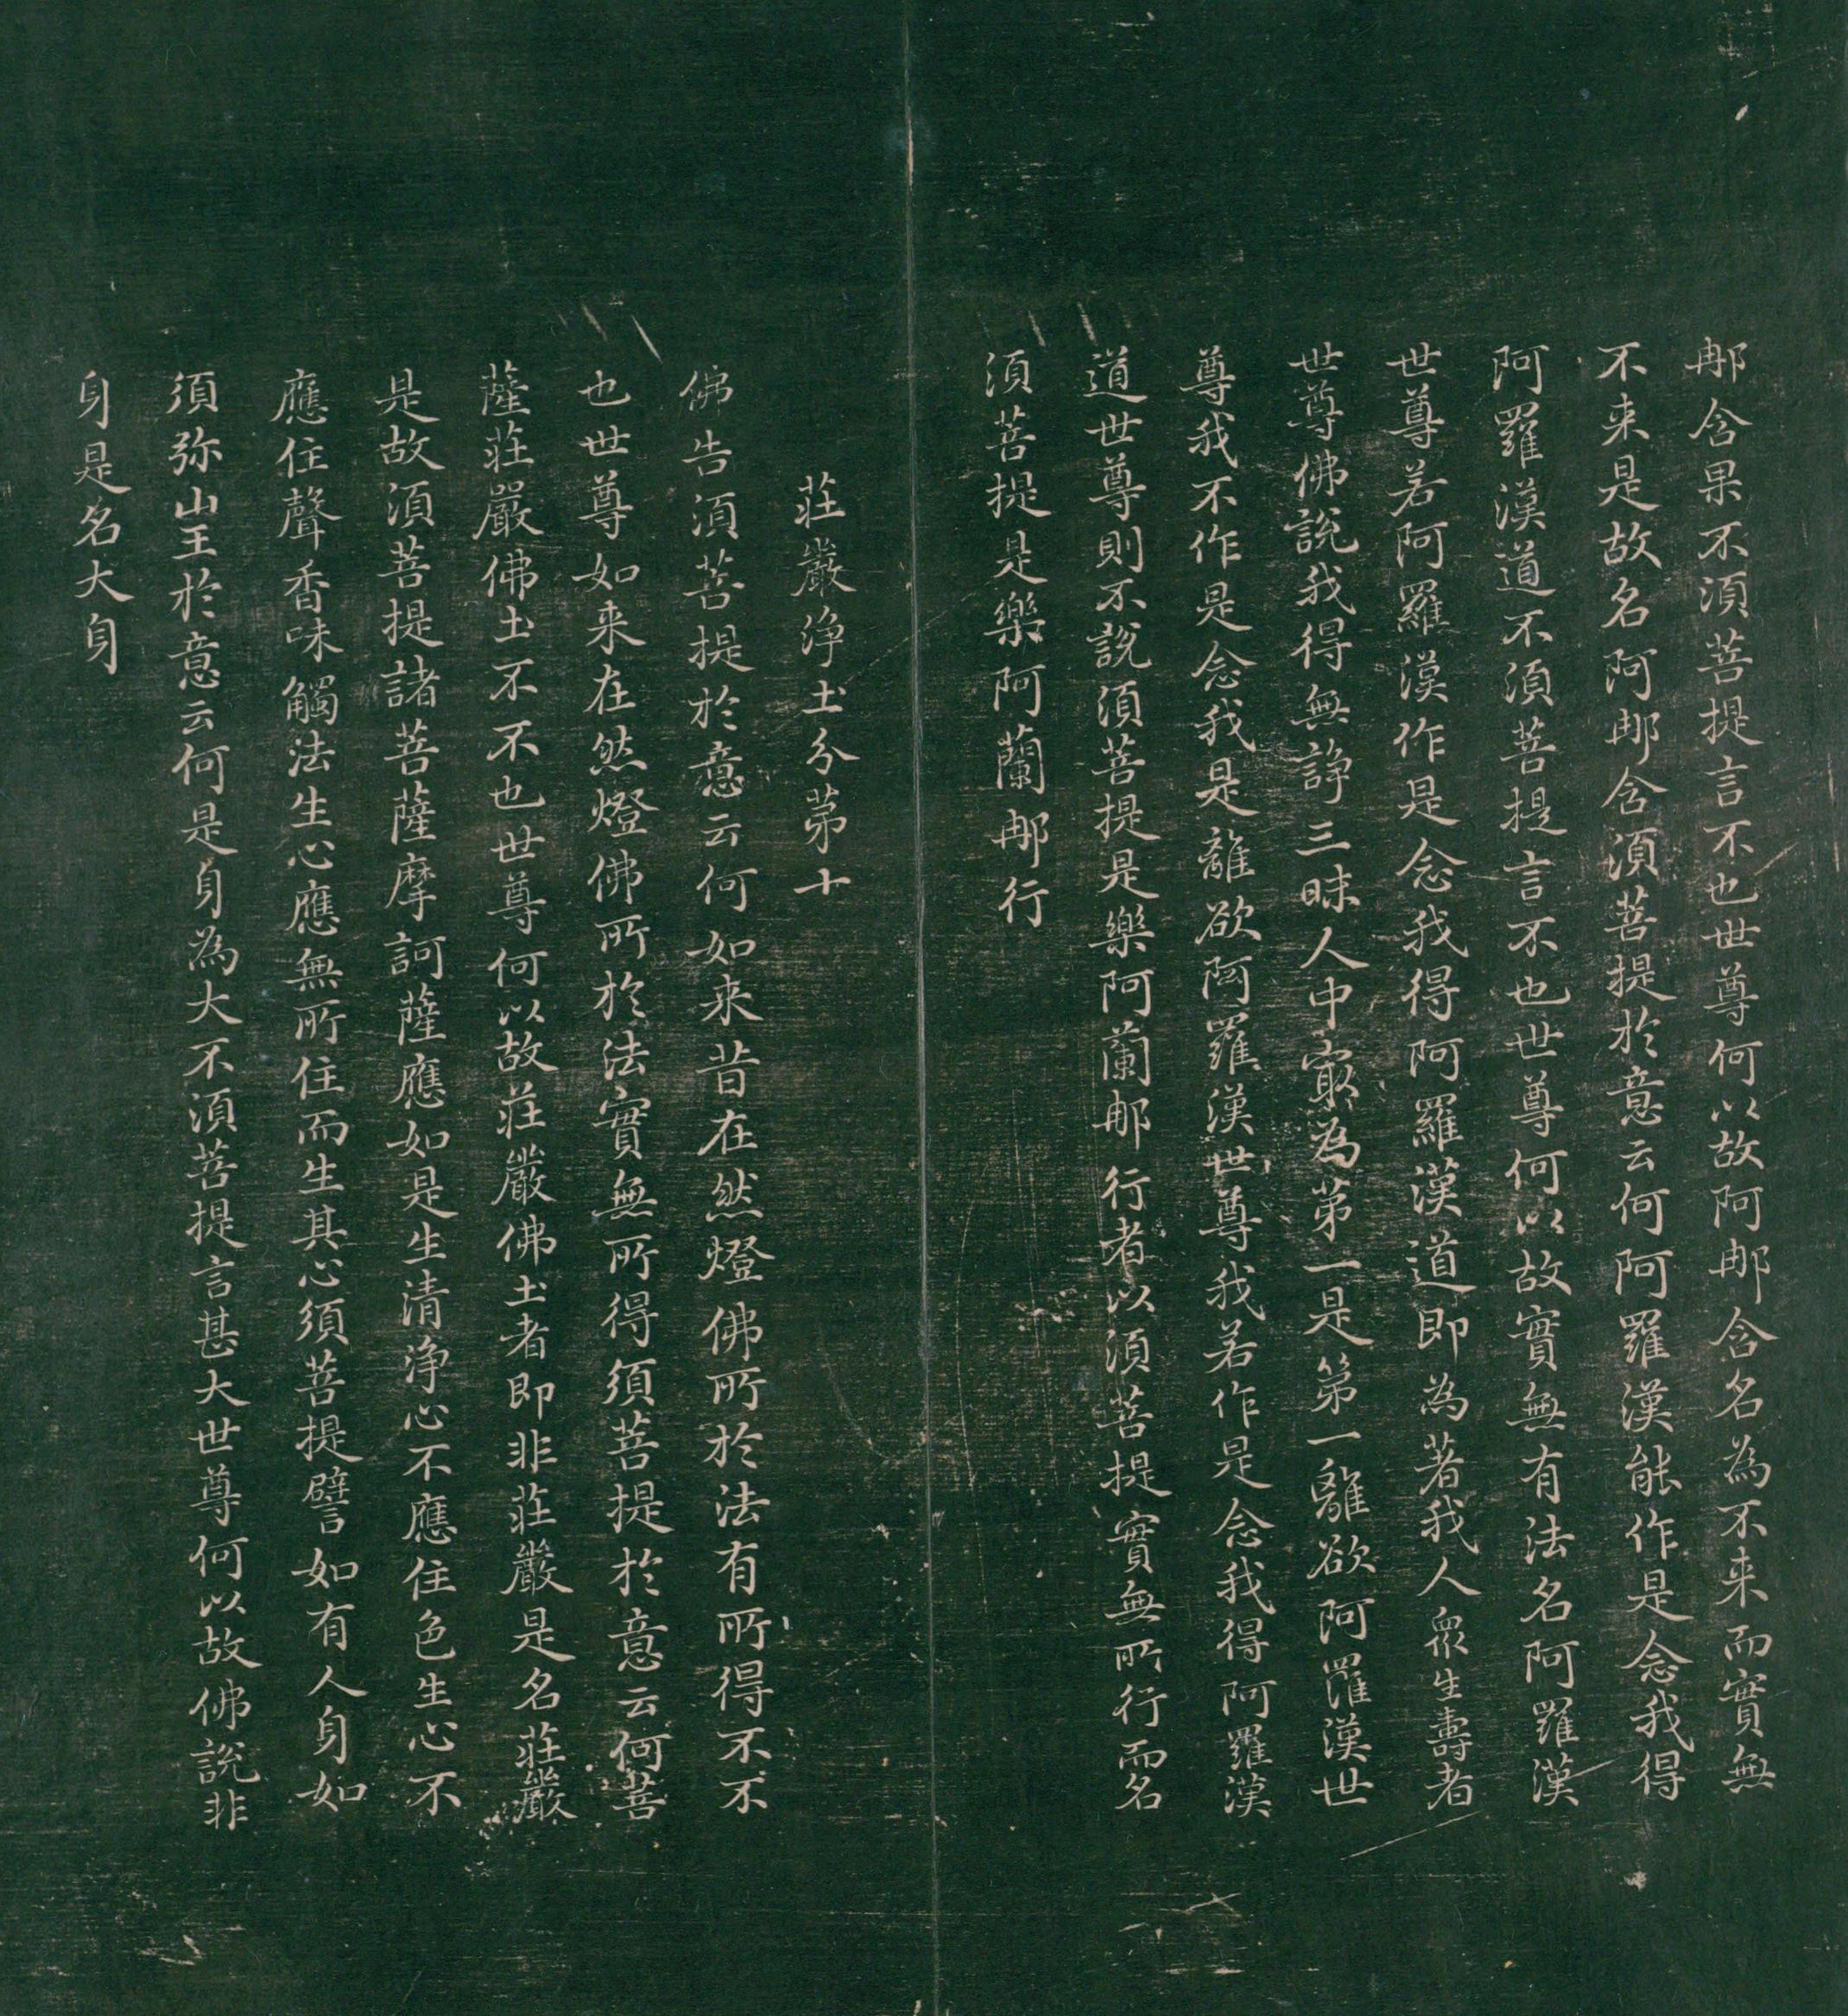 那含果不須菩提言不也世尊何以故阿那含名為不来而實無
不来是故名阿那含須菩提於意云何阿羅漢能作是念我得
阿羅漢道不須菩提言不也世尊何以故實無有法名阿羅漢
世尊若阿羅漢作是念我得阿羅漢道即為著我人衆生壽者
世尊佛說我得無諍三昧人中寂為第一是第一離欲阿羅漢世
尊我不作是念我是離欲阿羅漢世尊我若作是念我得阿羅漢
道世尊則不說須菩提是樂阿蘭那行者以須菩提實無所行而名
須菩提是樂阿蘭那行
莊嚴淨土分第十
佛告須菩提於意云何如来昔在然燈佛所於法有所得不不
也世尊如来在然燈佛所於法實無所得須菩提於意云何菩
薩莊嚴佛土不不也世尊何以故莊嚴佛土者即非莊嚴是名莊嚴
是故須菩提諸菩薩摩訶薩應如是生清淨心不應住色生心不
應住聲香味觸法生心應無所住而生其心須菩提譬如有人身如
須弥山王於意云何是身為大不須菩提言甚大世尊何以故佛說非
身是名大身